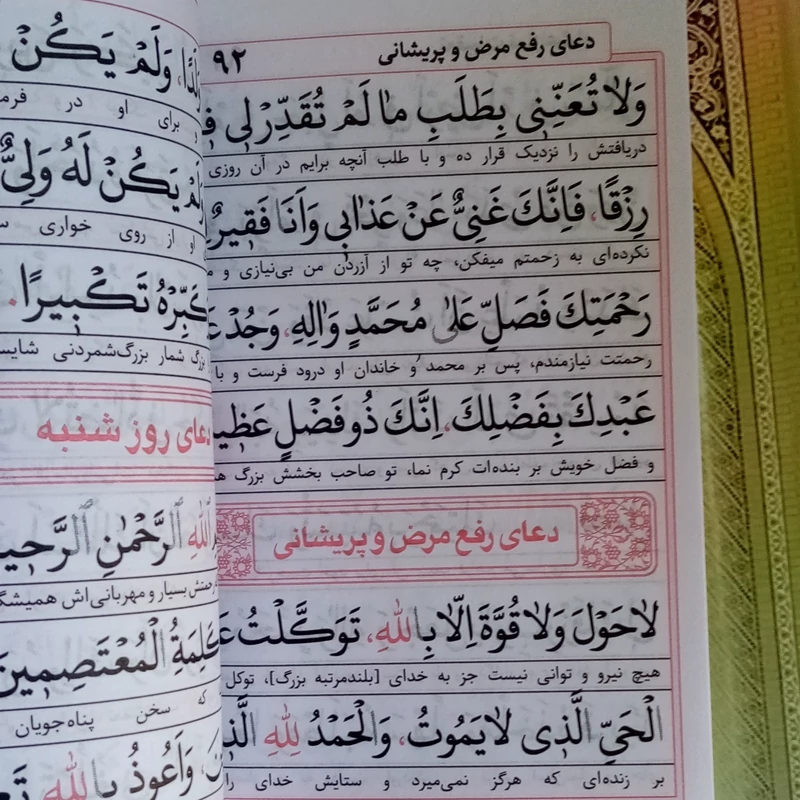 دعای رفع مرض و پریشانی
۹۲
وَلَا تُعَنِّنِی بِطَلَبِ مَا لَمْ تُقَدِّرْلِی
دریافتش را نزدیک قرار ده و با طلب آنچه برایم در آن روزی
رِزْقًا، فَاِنَّكَ غَنِیٌّ عَنْ عَذَابِی وَاَنَا فَقِیرٌ
نکرده‌ای به زحمتم میفکن، چه تو از آزردن من بی‌نیازی و
رَحْمَتِكَ فَصَلِّ عَلَى مُحَمَّدٍ وَاٰلِهِ، وَجُدْ
رحمتت نیازمندم، پس بر محمد و خاندان او درود فرست و با
عَبْدِكَ بِفَضْلِكَ، اِنَّكَ ذُو فَضْلٍ
و فضل خویش بر بنده‌ات کرم نما، تو صاحب بخشش بزرگ
دعای رفع مرض و پریشانی
لَا حَوْلَ وَلَا قُوَّةَ اِلَّا بِاللهِ، تَوَكَّلْتُ
هیچ نیرو و توانی نیست جز به خدای [بلندمرتبه بزرگ]، توکل
الْحَیِّ الَّذِی لَا یَمُوتُ، وَالْحَمْدُ لِلهِ
بر زنده‌ای که هرگز نمی‌میرد و ستایش خدای را
وَلَمْ یَكُنْ
برای او در
یَكُنْ لَهُ وَلِیٌّ
او از روی خواری
تَكْبِیرًا.
شمار بزرگ‌شمردنی
دعای روز شنبه
اللهِ الرَّحْمٰنِ
بسیار و مهربانی‌اش
كَلِمَةُ الْمُعْتَصِمِینَ
که سخن پناه‌جویان
وَاَعُوذُ بِاللهِ